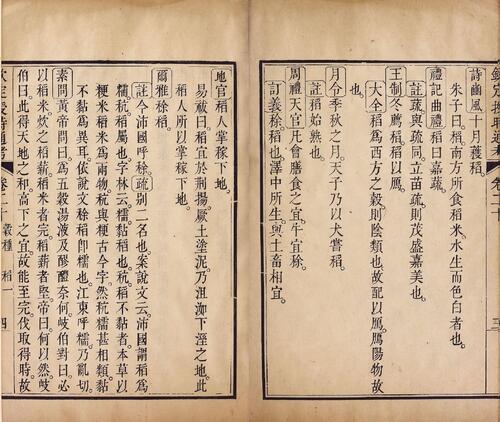 詩豳風十月穫稻。
朱子曰。稻南方所食稻米。水生而色白者也。
禮記曲禮稻曰嘉蔬。
註蔬與疏同。立苗疏。則茂盛嘉美也。
王制冬薦稻。稻以鴈。
大全稻為西方之穀。則陰類也。故配以鴈。鴈陽物故
也。
月令季秋之月。天子乃以犬嘗稻。
註稻始熟也。
周禮天官凡會膳食之宜。牛宜稌。
訂義稌。稻也。澤中所生。與土畜相宜。
地官稻人掌稼下地。
易祓曰稻宜於荆揚。厥土塗泥。乃沮洳下溼之地。此
稻人所以掌稼下地。
爾雅稌稻。
註今沛國呼稌。疏別二名也。案說文云。沛國謂稻為
糯。秔。稻屬也。字林云。糯。黏稻也。秔。稻不黏者。本草以
粳米稻米為兩物。秔與粳古今字。然秔糯甚相類。黏
不黏為異耳。依說文稌稻即糯也。江東呼糯。乃亂切。
素問黃帝問曰。為五穀湯液及醪醴奈何。岐伯對曰。必
以稻米。炊之稻薪。稻米者完。稻薪者堅。帝曰。何以然。岐
伯曰。此得天地之和。高下之宜。故能至完。伐取得時。故
欽定授時通考 卷二十 穀種 稻一 四